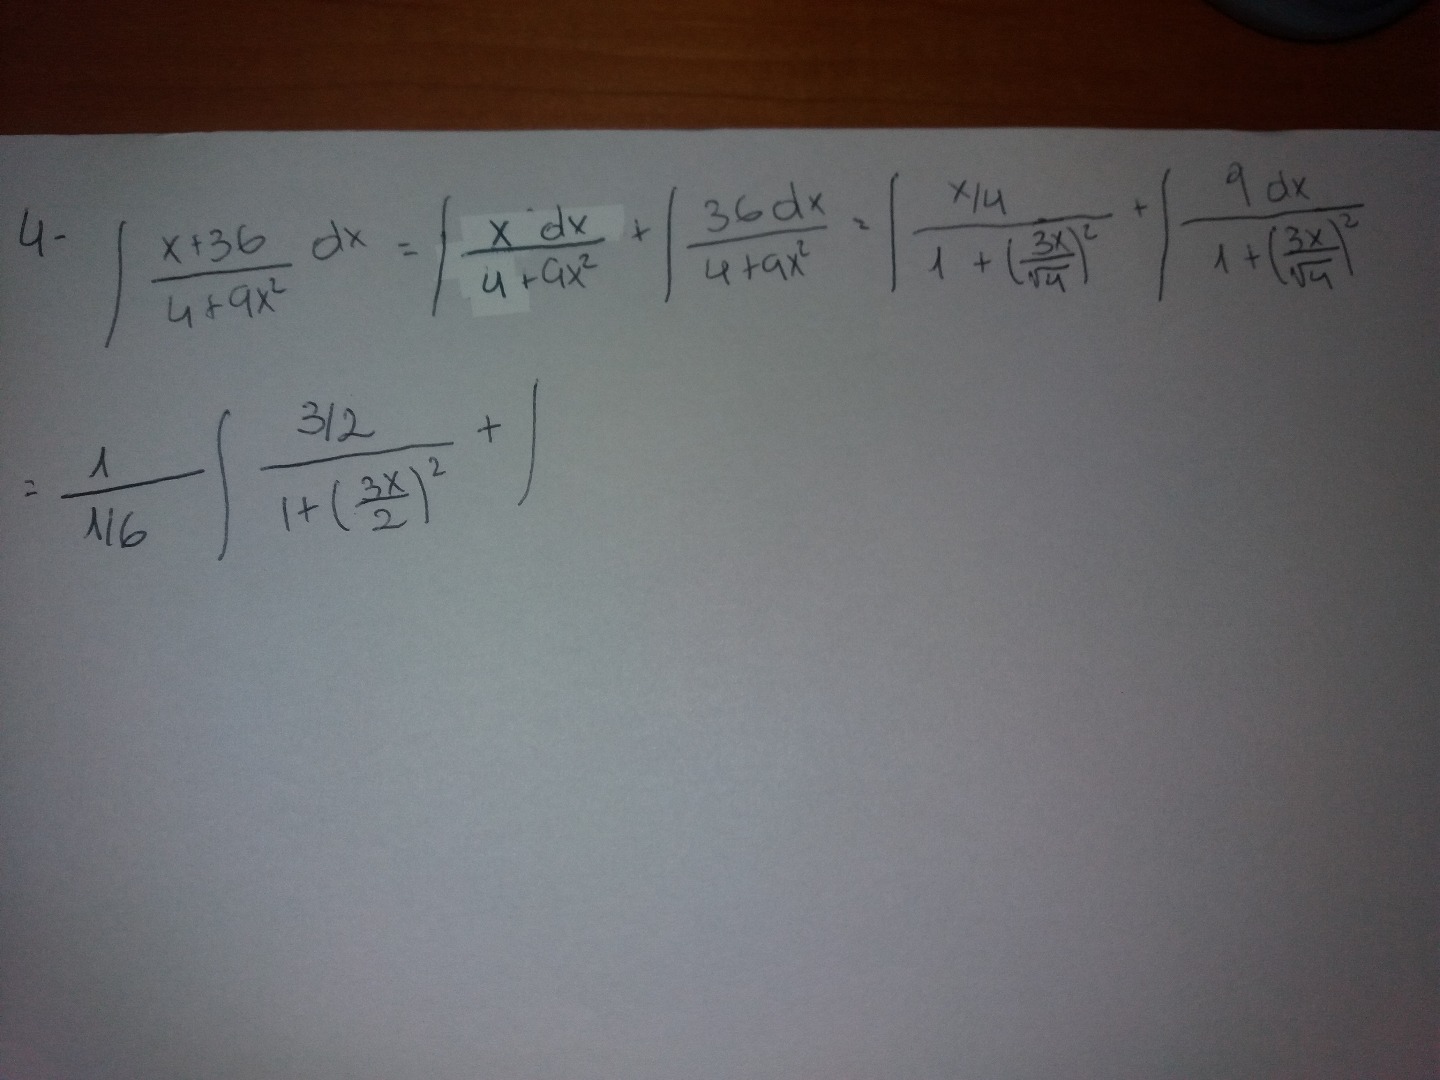 4- ∫ x+36 / 4+9x² dx = ∫ x dx / 4+9x² + ∫ 36 dx / 4+9x² = ∫ x/4 / 1+(3x/√4)² + ∫ 9 dx / 1+(3x/√4)²
= 1 / 1/6 ∫ 3/2 / 1+(3x/2)² + ∫